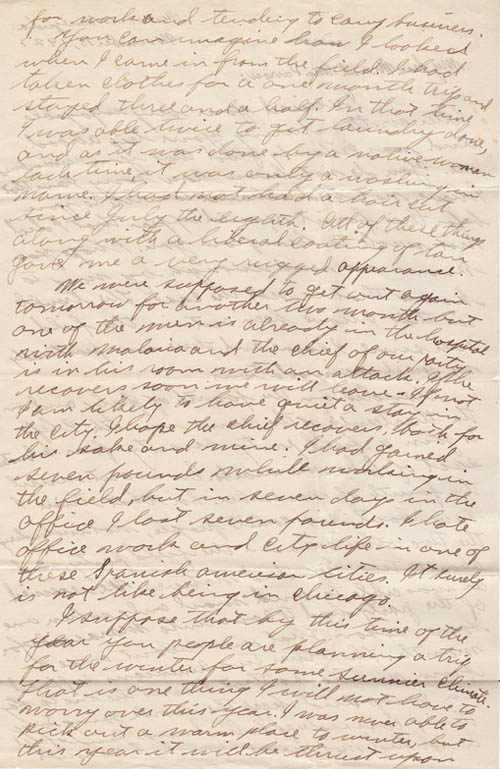 for work and tending to camp business.
You can imagine how I looked
when I came in from the field. I had
taken clothes for a one month trip and
stayed three and a half. In that time
I was able twice to get laundry done,
and as it was done by a native woman
each time, it was only a washing in
name. I had not had a hair cut
since July the eighth. All of these things
along with a liberal coating of tan
gave me a very rugged appearance.
We were supposed to get out again
tomorrow for another two month but
one of the men is already in the hospital
with malaria and the chief of our party
is in his room with an attack. If he
recovers soon we will leave. If not
I am likely to have quiet a stay in
the city. I hope the chief recovers, both for
his sake and mine. I had gained
seven pounds while working in
the field, but in seven day in the
office I lost seven pounds. I hate
office work and city life in one of
these Spanish american cities. It surely
is not like being in chicago.
I suppose that by this time of the
year you people are planning a trip
for the winter for some sunnier climate.
That is one thing I will not have to
worry over this year. I was never able to
pick out a warm place to winter, but
this year it will be thrust upon